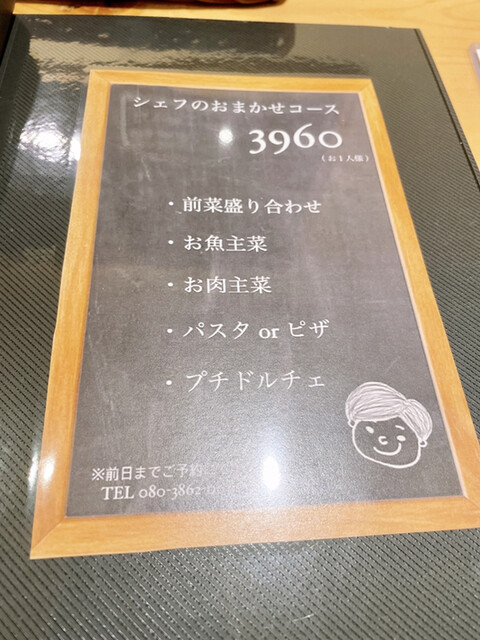 シェフのおまかせコース
3960
(お1人様)
・前菜盛り合わせ
・お魚主菜
・お肉主菜
・パスタ or ピザ
・プチドルチェ
※前日までご予約
TEL 080-3862-